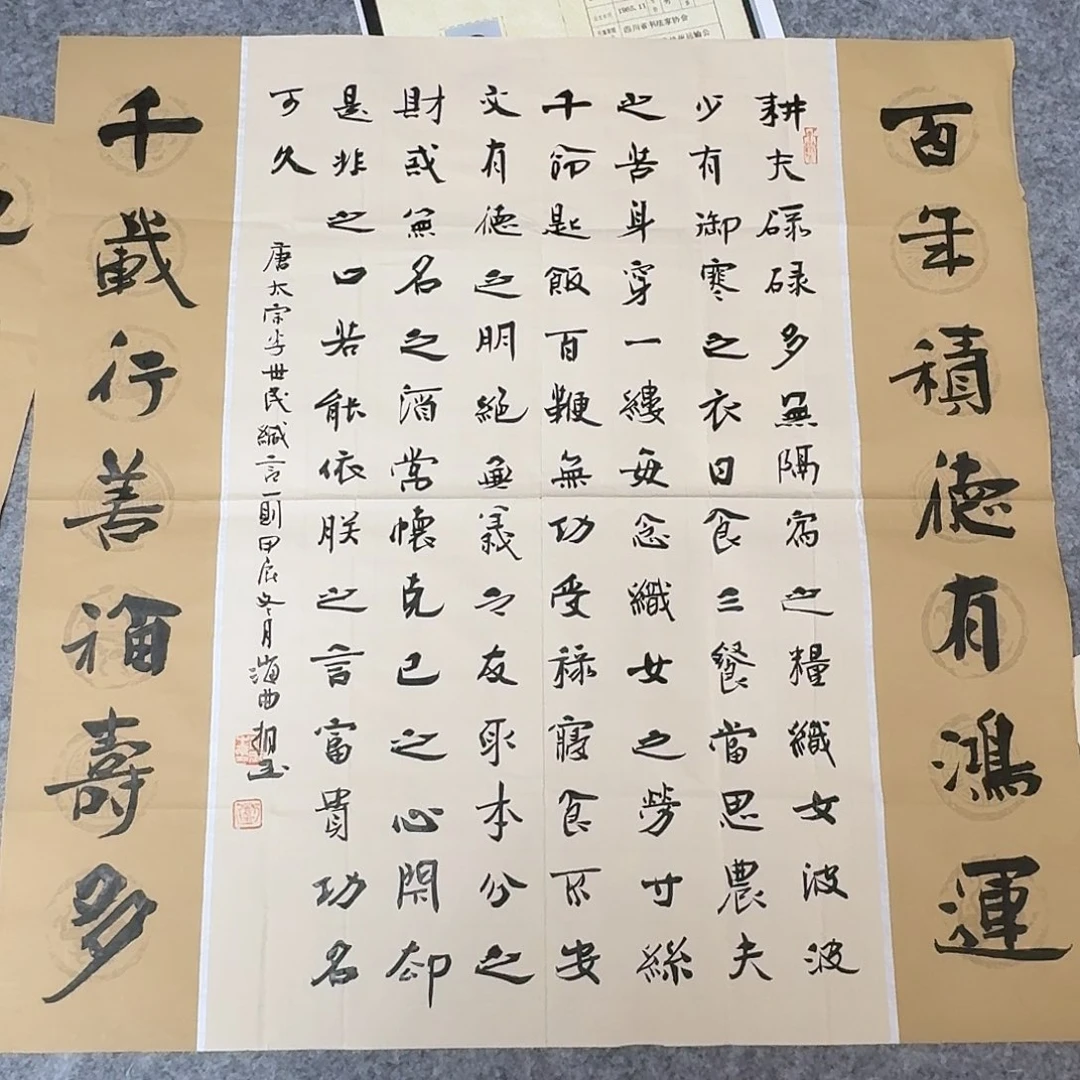 四川省书法家协会
百年積德有鴻運
耕夫碌碌多無隔宿之糧織女波波
少有御寒之衣日食三餐當思農夫
之苦身穿一縷每念織女之勞寸絲
千命匙飯百鞭無功受禄寢食不安
交有德之朋絕無義之友取本分之
財戒無名之酒常懷克己之心閑却
是非之口若能依朕之言富貴功名
可久
唐太宗李世民緘言一則甲辰冬月
千載行善福壽多